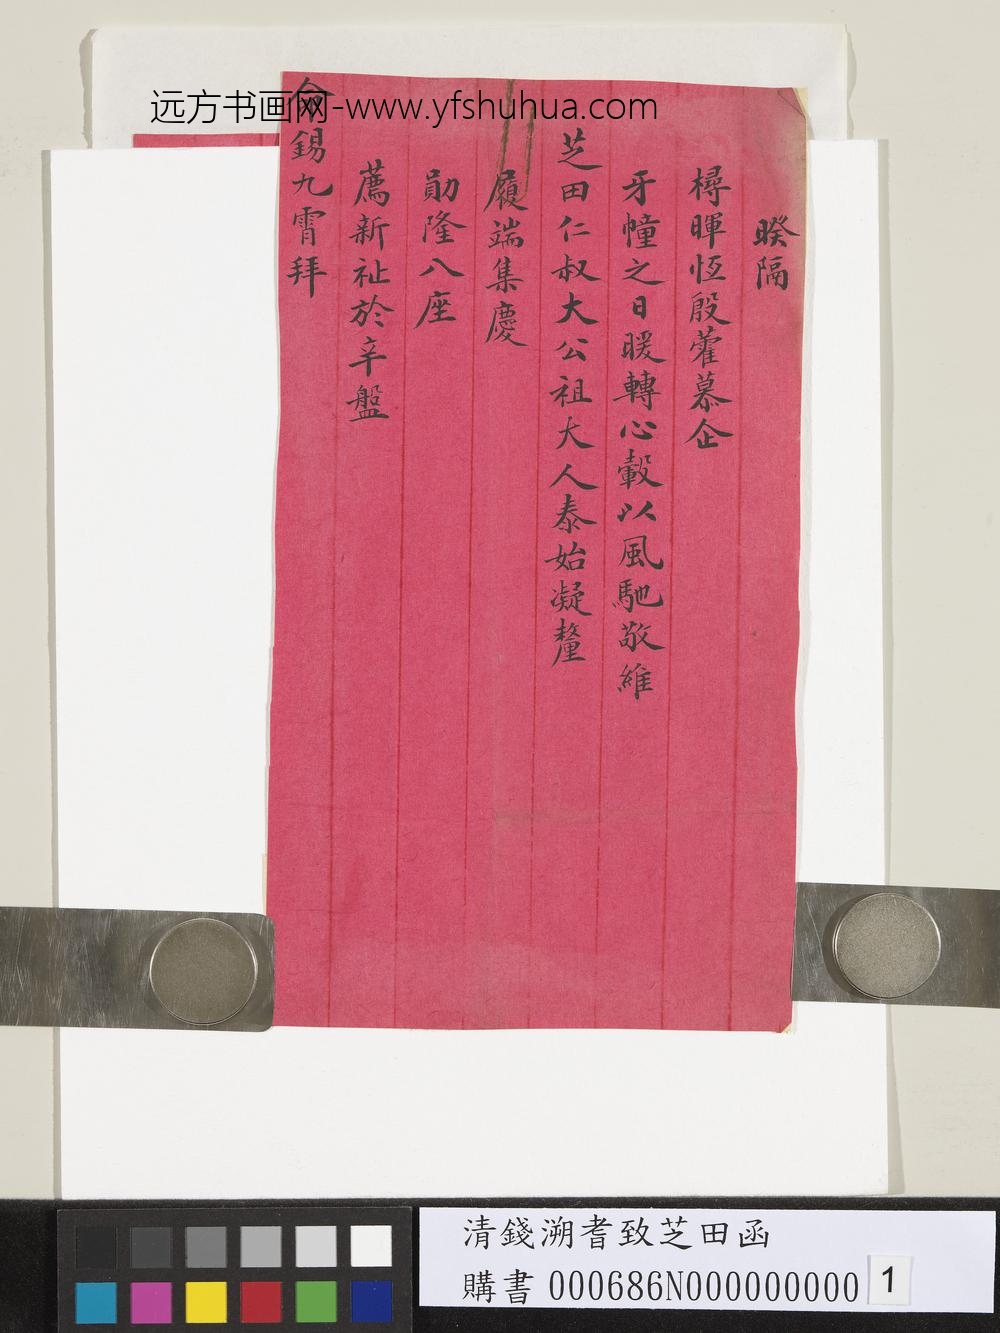 远方书画网-www.yfshuhua.com
暌隔
樽暉恆殷藿慕企
牙幢之日暖轉心轂以風馳敬維
芝田仁叔大公祖大人泰始凝釐
履端集慶
勛隆八座
薦新祉於辛盤
錫九霄拜
清錢溯耆致芝田函
購書 000686N000000000
1